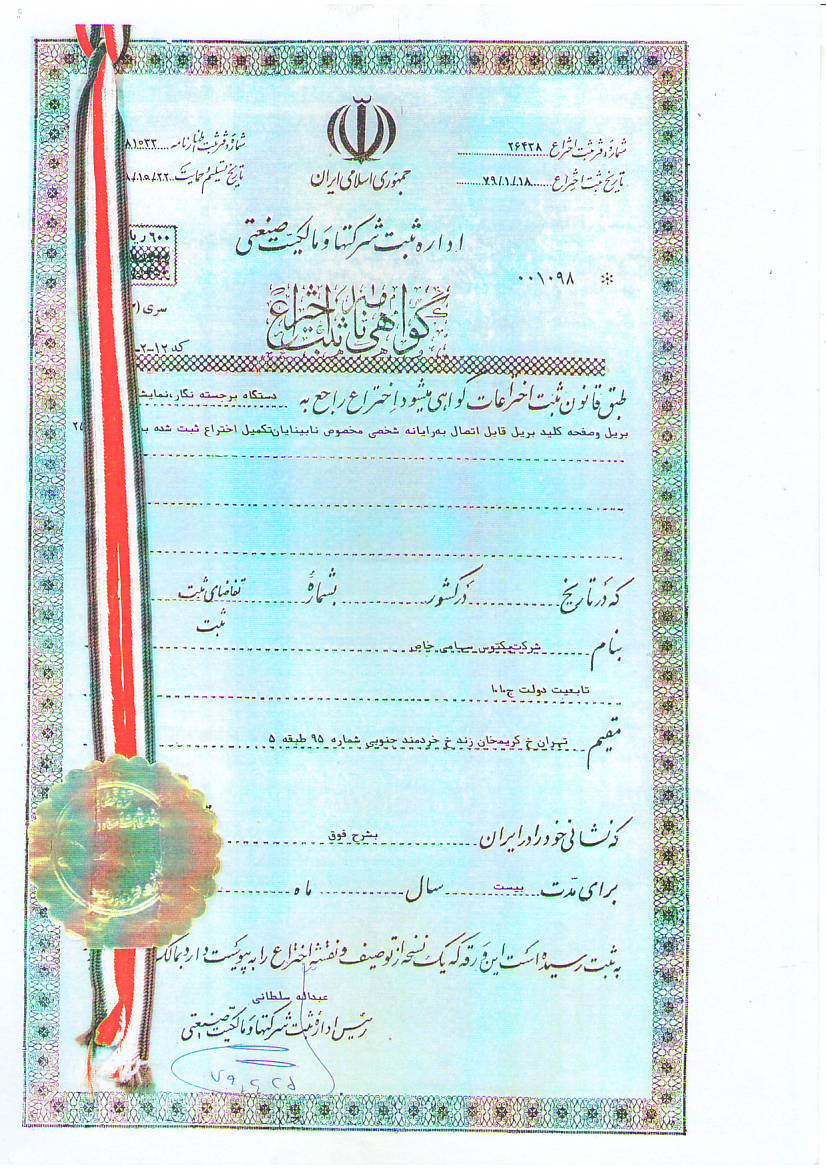 شماره دفتر ثبت اختراع ۲۶۴۳۸
تاریخ ثبت اختراع ۷۹/۱/۱۸
جمهوری اسلامی ایران
شماره دفتر ثبت اظهارنامه ۸۱۵۳۳
تاریخ تسلیم و حمایت
اداره ثبت شرکتها و مالکیت صنعتی
۶۰۰ ریا
* ۰۰۱۰۹۸
سری
گواهی نامه ثبت اختراع
کد ۱۲-۲-
طبق قانون ثبت اختراعات گواهی میشود اختراع راجع به دستگاه برجسته نگار،نمایش
بریل وصفحه کلید بریل قابل اتصال به‌رایانه شخصی مخصوص نابینایان‌تکمیل اختراع ثبت شده
که در تاریخ در کشور بشماره تقاضای ثبت
ثبت
بنام شرکت‌مکتوس سهامی خاص
تابعیت دولت ج۱۰۱۰
مقیم تهران خ کریمخان زند خ خردمند جنوبی شماره ۹۵ طبقه ۵
که نشانی خود را در ایران بشرح فوق
برای مدت بیست سال ماه
به ثبت رسیده است این ورقه که یک نسخه از توصیف و نقشه اختراع را به پیوست دارد بمالک
عبداله سلطانی
رئیس اداره ثبت شرکتها و مالکیت صنعتی